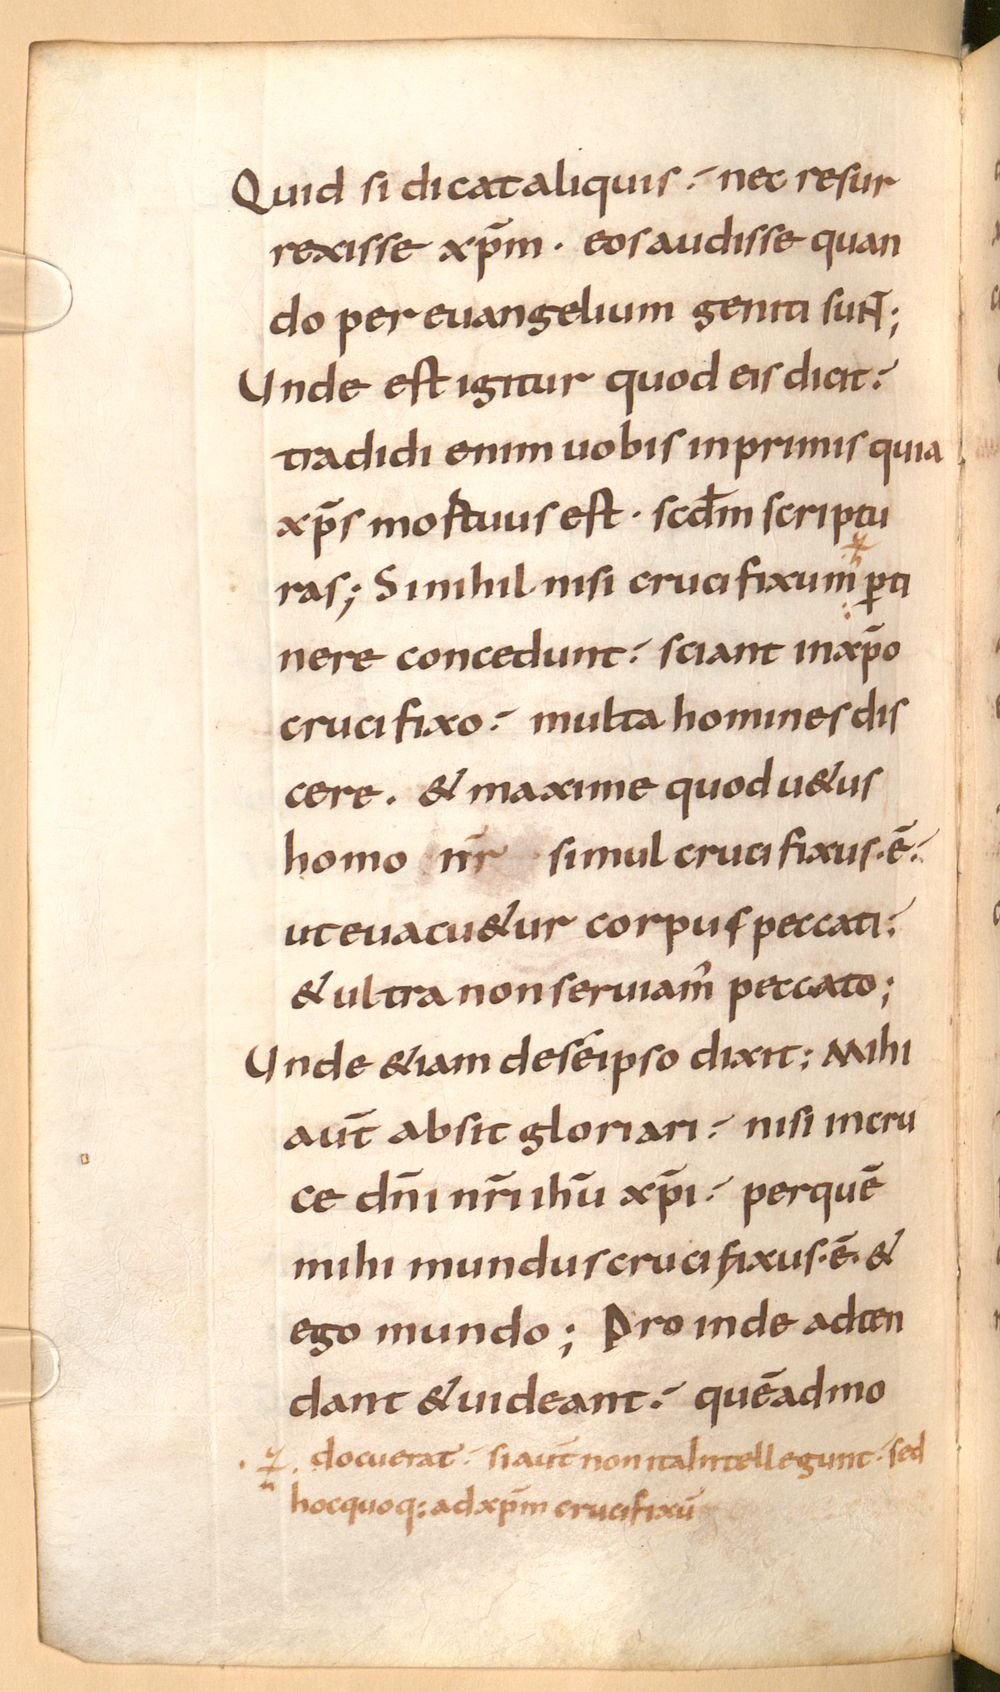 Quid si dicat aliquis:- nec resur
rexisse xp̄m · eos audisse quan
do per euangelium geniti sunt̄;
Unde est igitur quod eis dicit:-
tradidi enim uobis inprimis quia
xp̄s mortuus est · scdm̄ scriptu
ras; Si nihil nisi crucifixum ꝑti
nere concedunt:- sciant inxp̄o
crucifixo:- multa homines dis
cere . & maxime quod u&us
homo nr̄ simul crucifixus·ē·:-
ut euacu&ur corpus peccati:-
& ultra non seruiam᾽ peccato;
Unde &iam de se ipso dixit: Mihi
aut̄ absit gloriari:- nisi in cru
ce dn̄i nr̄i ihū xp̄i:- per quē
mihi mundus crucifixus·ē· &
ego mundo; Proinde adten
dant & uideant:- quēadmo
docuerat:- si aut̄ non ita intellegunt · sed
hoc quoq; ad xp̄m crucifixū